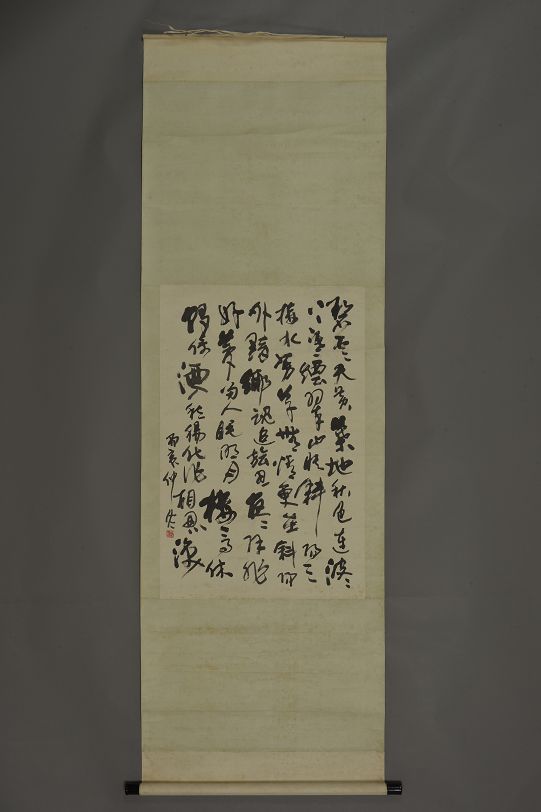 碧雲天黄葉地秋色連波〻
上寒煙翠山映斜陽天
接水芳草無情更在斜陽
外黯鄉魂追旅思夜〻除非
好夢留人睡明月樓高休
獨倚酒入愁腸化作相思淚
丙仲冬